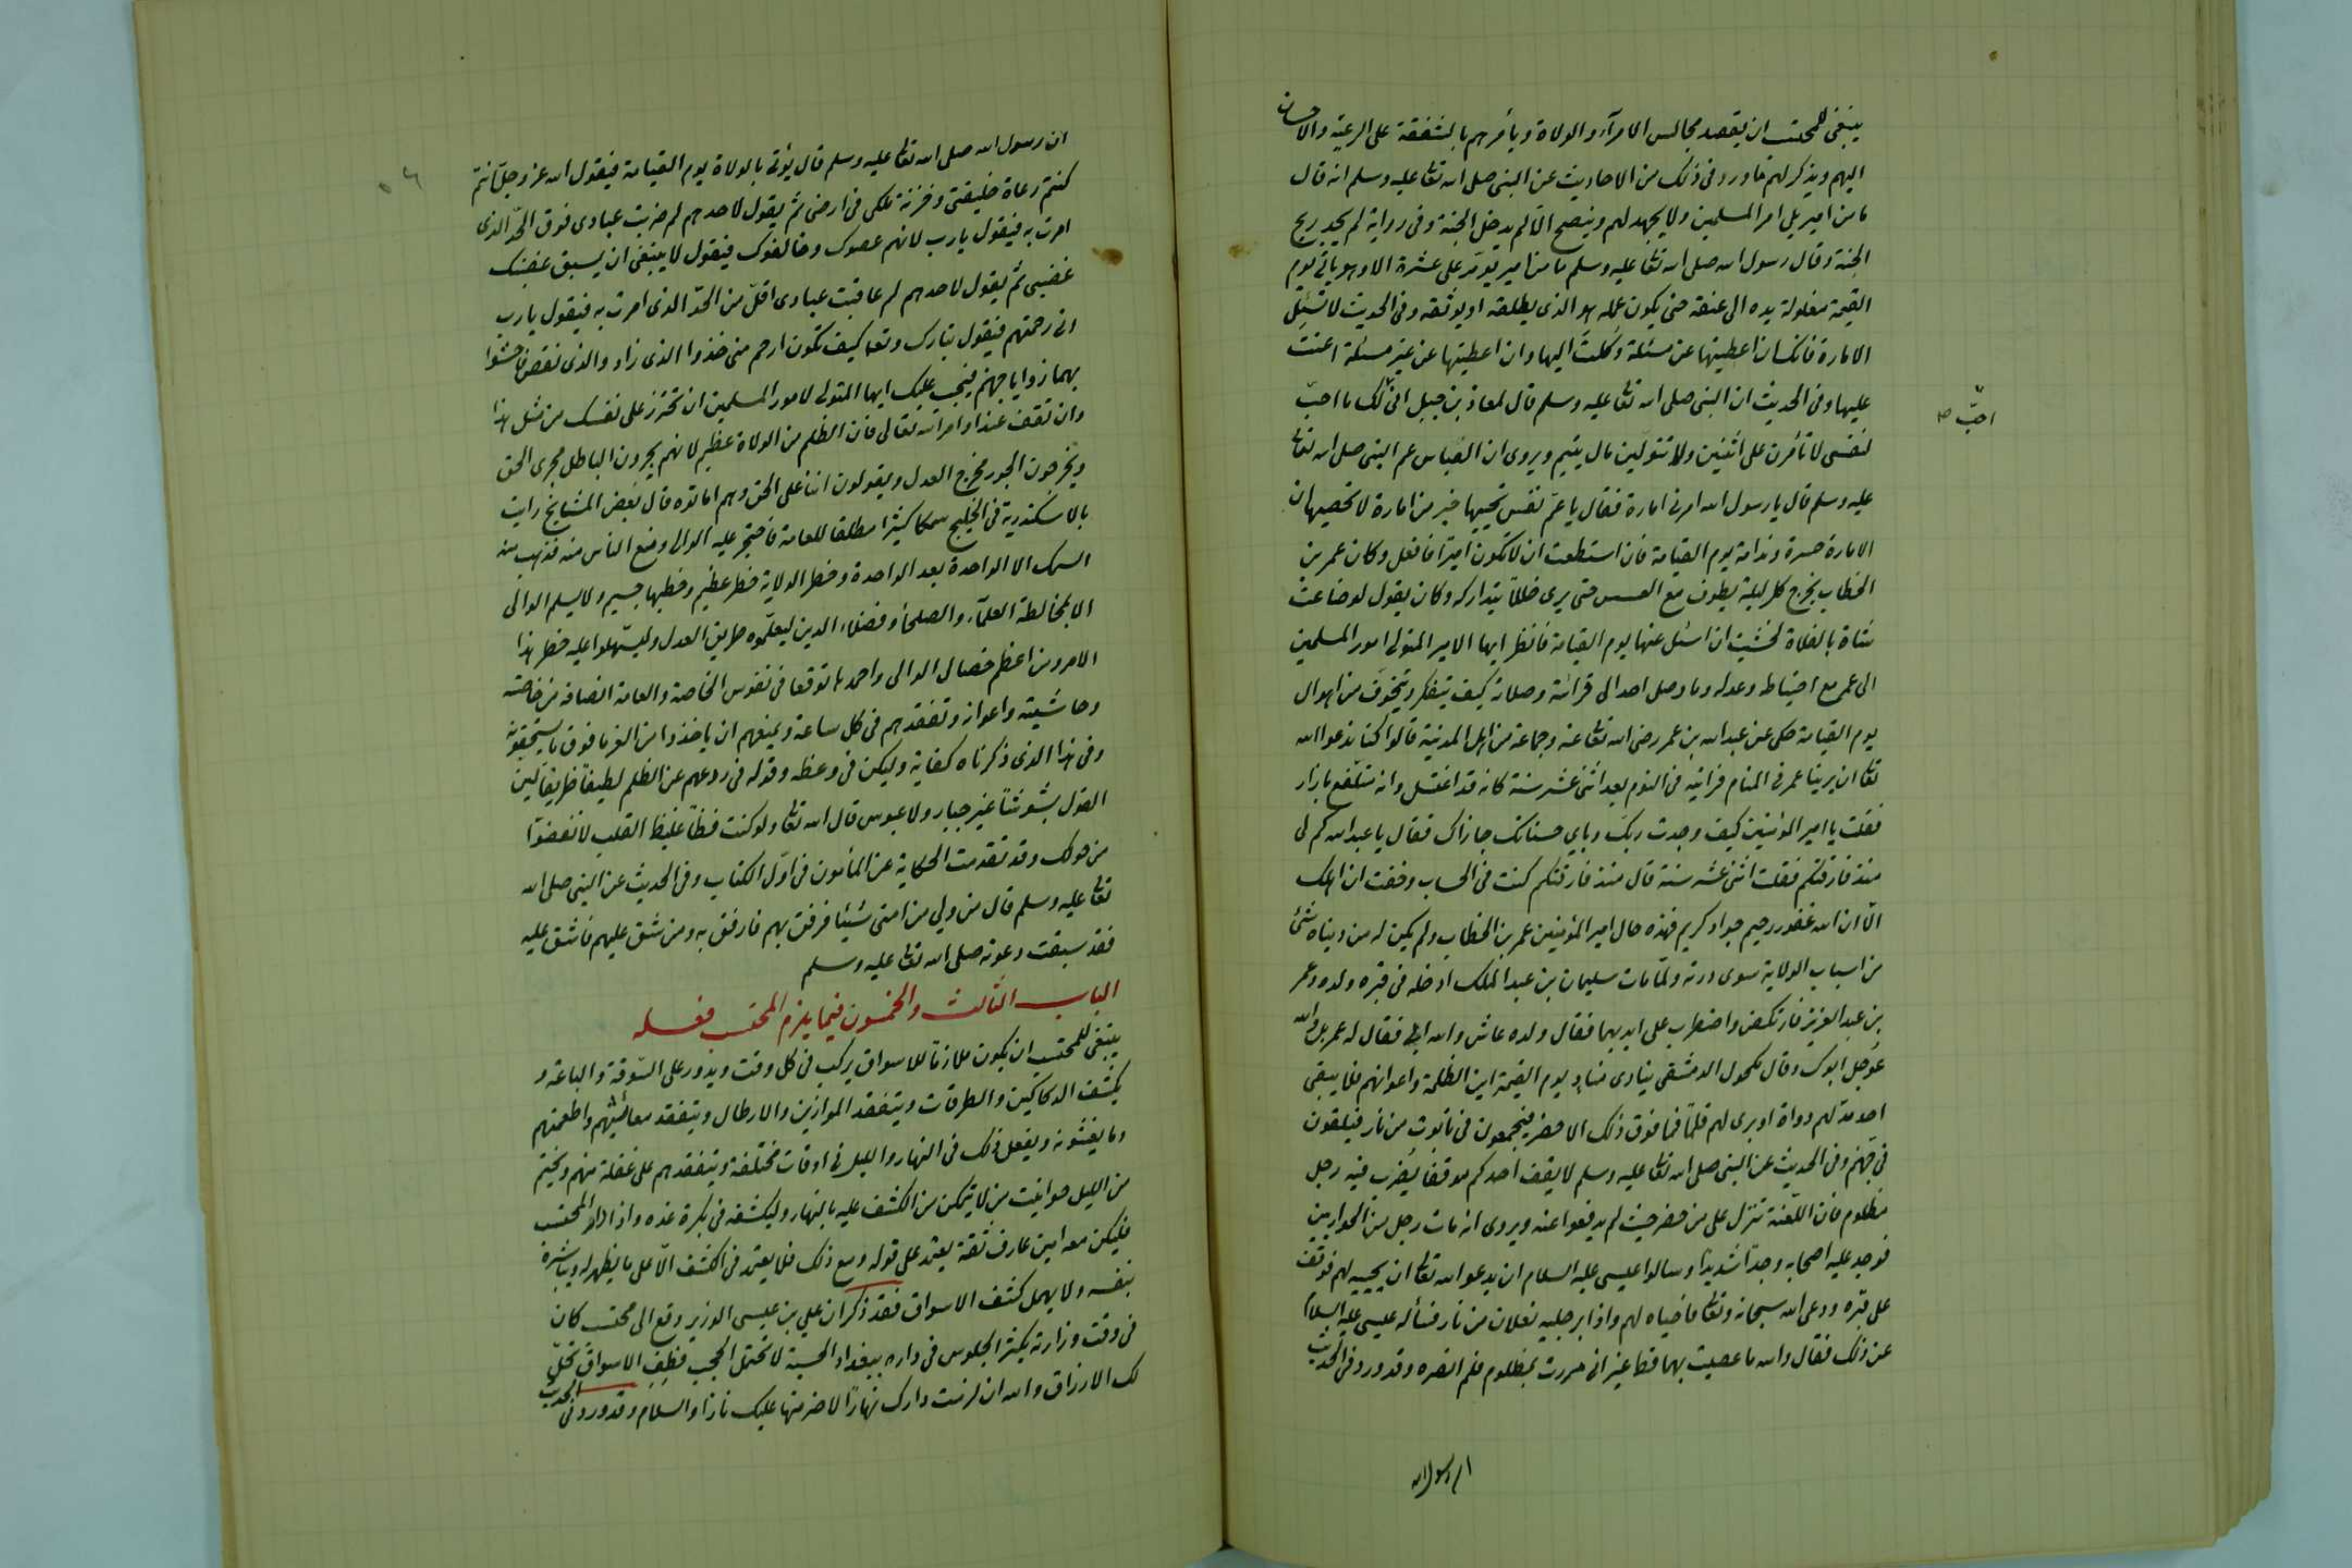 ينبغى للمحتسب ان يقصد مجالس الامرآء والولاة ويأمرهم بالشفقة على الرعية والاحسان
اليهم ويذكر لهم ما ورد فى ذلك من الاحاديث عن النبى صلى الله تعا عليه وسلم انه قال
ما من امير يلى امر المسلمين ولا يجهد لهم وينصح الّا لم يدخل الجنة وفى رواية لم يجد ريح
الجنة وقال رسول الله صلى الله تعا عليه وسلم ما من امير يؤمّر على عشرة الا وهو ياتى يوم
القيمة مغلولة يده الى عنقه حتى يكون عمله هو الذى يطلقه او يوثقه وفى الحديث لا تسئل
الامارة فانك ان اعطيتها عن مسئلة وكلت اليها وان اعطيتها عن غير مسئلة اعنت
عليها وفى الحديث ان النبى صلى الله تعا عليه وسلم قال لمعاذ بن جبل انى لك ما احبّ
احبّ ص
لنفسى لا تأمرن على اثنين ولا تتولين مال يتيم ويروى ان العباس عم النبى صلى الله تعا
عليه وسلم قال يا رسول الله امرنى امارة فقال يا عمّ نفس تحييها خير من امارة لا تحصيها ان
الامارة حسرة وندامة يوم القيامة فان استطعت ان لا تكون اميرًا فافعل وكان عمر بن
الخطاب يخرج كل ليلة يطوف مع العسس حتى يرى خللا يتداركه وكان يقول لو ضاعت
شاة بالفلاة لخشيت ان اسئل عنها يوم القيامة فانظر ايها الامير المتولى امور المسلمين
الى عمر مع احتياطه وعدله وما وصل احد الى قرائته وصلاته كيف يتفكر ويتخوف من اهوال
يوم القيامة حكى عن عبد الله بن عمر رضى الله تعا عنه وجماعة من اهل المدينة قالوا كنا ندعو الله
تعا ان يرينا عمر فى المنام فرايته فى النوم بعد اثنى عشر سنة كانه قد اغتسل وانه متلفع بازار
فقلت يا امير المؤمنين كيف وجدت ربك وباي حسناتك جازاك فقال يا عبد الله كم لى
منذ فارقتكم فقلت اثنى عشر سنة قال منذ فارقتكم كنت فى الحساب وخفت ان اهلك
الّا ان الله غفور رحيم جواد كريم فهذه حال امير المؤمنين عمر بن الخطاب ولم يكن له من دنياه شئ
من اسباب الولاية سوى درته ولمّا مات سليمان بن عبد الملك ادخله فى قبره ولده وعمر
بن عبد العزيز فارتكض واضطرب على ايديهما فقال ولده عاش والله ابى فقال له عمر بل والله
عوجل ابوك وقال مكحول الدمشقى ينادى مناد يوم القيمة اين الظلمة واعوانهم فلا يبقى
احد مد لهم دواة او برى لهم قلمًا فما فوق ذلك الا حضر فيجمعون فى تابوت من نار فيلقون
فى جهنم وفى الحديث عن النبى صلى الله تعا عليه وسلم لا يقف احدكم موقفا يضرب فيه رجل
مظلوم فان اللعنة تنزل على من حضر حيث لم يدفعوا عنه ويروى انه مات رجل من الحواريين
فوجد عليه اصحابه وجدًا شديدًا وسالوا عيسى عليه السلام ان يدعو الله تعا ان يحييه لهم فوقف
على قبره ودعى الله سبحانه وتعا فاحياه لهم واذا برجليه نعلان من نار فسأله عيسى عليه السلام
عن ذلك فقال والله ما عصيت بهما قط غير انى مررت بمظلوم فلم انصره وقد ورد فى الحديث
ان رسول الله
ان رسول الله صلى الله تعا عليه وسلم قال يؤتى بالولاة يوم القيامة فيقول الله عز وجل انتم
كنتم رعاة خليقتى وخزنة ملكى فى ارضى ثم يقول لاحدهم لم ضربت عبادى فوق الحدّ الذى
امرت به فيقول يا رب لانهم عصوك وخالفوك فيقول لا ينبغى ان يسبق غضبك
غضبى ثم يقول لاحدهم لم عاقبت عبادى اقلّ من الحدّ الذى امرت به فيقول يا رب
انى رحمتهم فيقول تبارك وتعا كيف تكون ارحم منى خذوا الذى زاد والذى نقص فاحشوا
بهما زوايا جهنم فيجب عليك ايها المتولى لامور المسلمين ان تحترز على نفسك من مثل هذا
وان تقف عند اوامر الله تعالى فان الظلم من الولاة عظيم لانهم يجرون الباطل مجرى الحق
ويخرجون الجور مخرج العدل ويقولون اننا على الحق وهم اماتوه قال بعض المشايخ رايت
بالاسكندرية فى الخليج سمكا كثيرًا مطلقا للعامة فاحتجر عليه الوالى ومنع الناس منه فذهب منه
السمك الا الواحدة بعد الواحدة وخطر الولاية خطر عظيم وخطبها جسيم ولا يسلم الوالى
الا بمخالطة العلمآء والصلحاء وفضلاء الدين ليعلّموه طريق العدل وليسهلوا عليه خطر هذا
الامر ومن اعظم خصال الوالى واحمدها توقعا فى نفوس الخاصة والعامة انصافه من خاصته
وحاشيته واعوانه وتفقدهم فى كل ساعة ويمنعهم ان ياخذوا من الغرما فوق ما يستحقونه
وفى هذا الذى ذكرناه كفاية وليكن فى وعظه وقوله فى ردعهم عن الظلم لطيفا ظريفا لين
القول بشوشًا غير جبار ولا عبوس قال الله تعا ولو كنت فظّا غليظ القلب لانفضوا
من حولك وقد تقدمت الحكاية عن المأمون فى اوّل الكتاب وفى الحديث عن النبى صلى الله
تعا عليه وسلم قال من ولي من امتى شيئا فرفق بهم فارفق به ومن شق عليهم فاشق عليه
فقد سبقت دعوته صلى الله تعا عليه وسلم
الباب الثالث والخمسون فيما يلزم المحتسب فعله
ينبغى للمحتسب ان يكون ملازمًا للاسواق يركب فى كل وقت ويدور على السوقة والباعة و
يكشف الدكاكين والطرقات ويتفقد الموازين والارطال ويتفقد معائشهم واطعمتهم
وما يغشونه ويفعل ذلك فى النهار والليل فى اوقات مختلفة ويتفقدهم على غفلة منهم ويختم
من الليل حوانيت من لا يتمكن من الكشف عليه بالنهار وليكشفه فى بكرة غده واذا اراد المحتسب
فليكن معه امين عارف ثقة يعتمد على قوله ومع ذلك فلا يعتمد فى الكشف الّا على ما يظهر له ويباشره
بنفسه ولا يهمل كشف الاسواق فقد ذكر ان على بن عيسى الوزير وقع الى محتسب كان
فى وقت وزارته يكثر الجلوس فى داره ببغداد الحسبة لا تحتمل الحجب فطف الاسواق تحلّ
لك الارزاق والله ان لزمت دارك نهارًا لاضرمنها عليك نارا والسلام وقد ورد فى الحديث